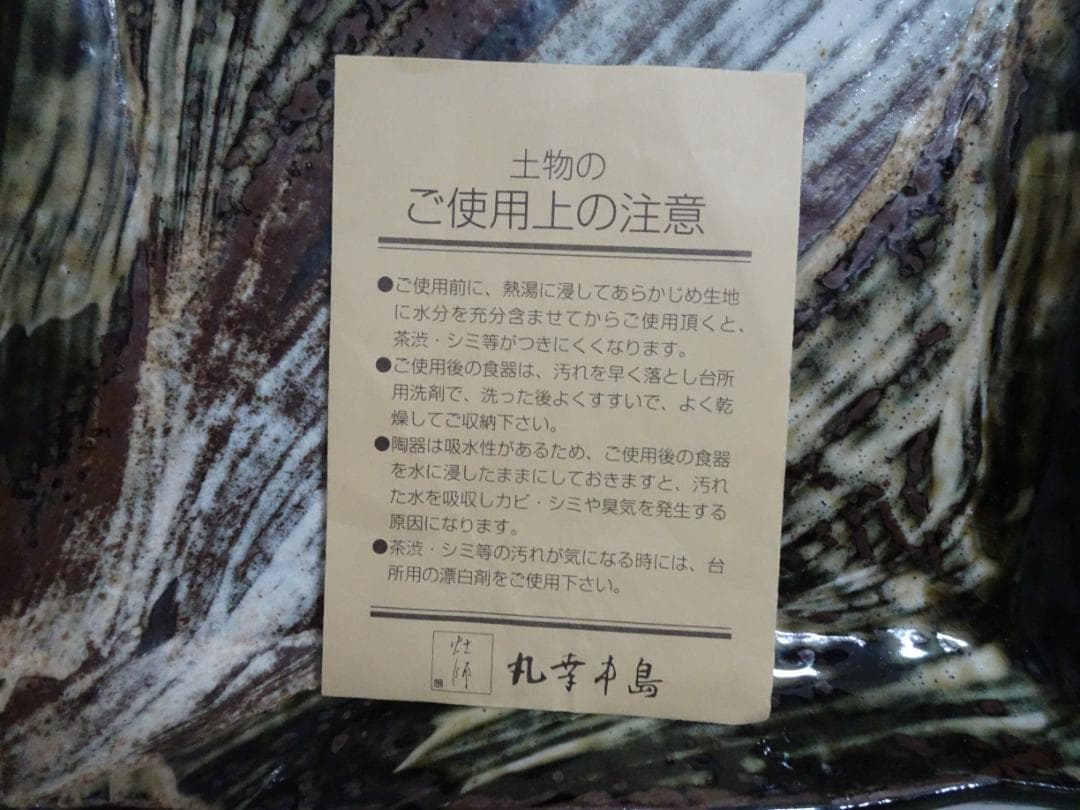 土物の
ご使用上の注意
●ご使用前に、熱湯に浸してあらかじめ生地
に水分を充分含ませてからご使用頂くと、
茶渋・シミ等がつきにくくなります。
●ご使用後の食器は、汚れを早く落とし台所
用洗剤で、洗った後よくすすいで、よく乾
燥してご収納下さい。
●陶器は吸水性があるため、ご使用後の食器
を水に浸したままにしておきますと、汚れ
た水を吸収しカビ・シミや臭気を発生する
原因になります。
●茶渋・シミ等の汚れが気になる時には、台
所用の漂白剤をご使用下さい。
丸幸中島